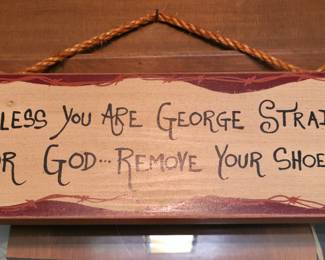 LESS YOU ARE GEORGE STRAI
R GOD... REMOVE YOUR SHOE